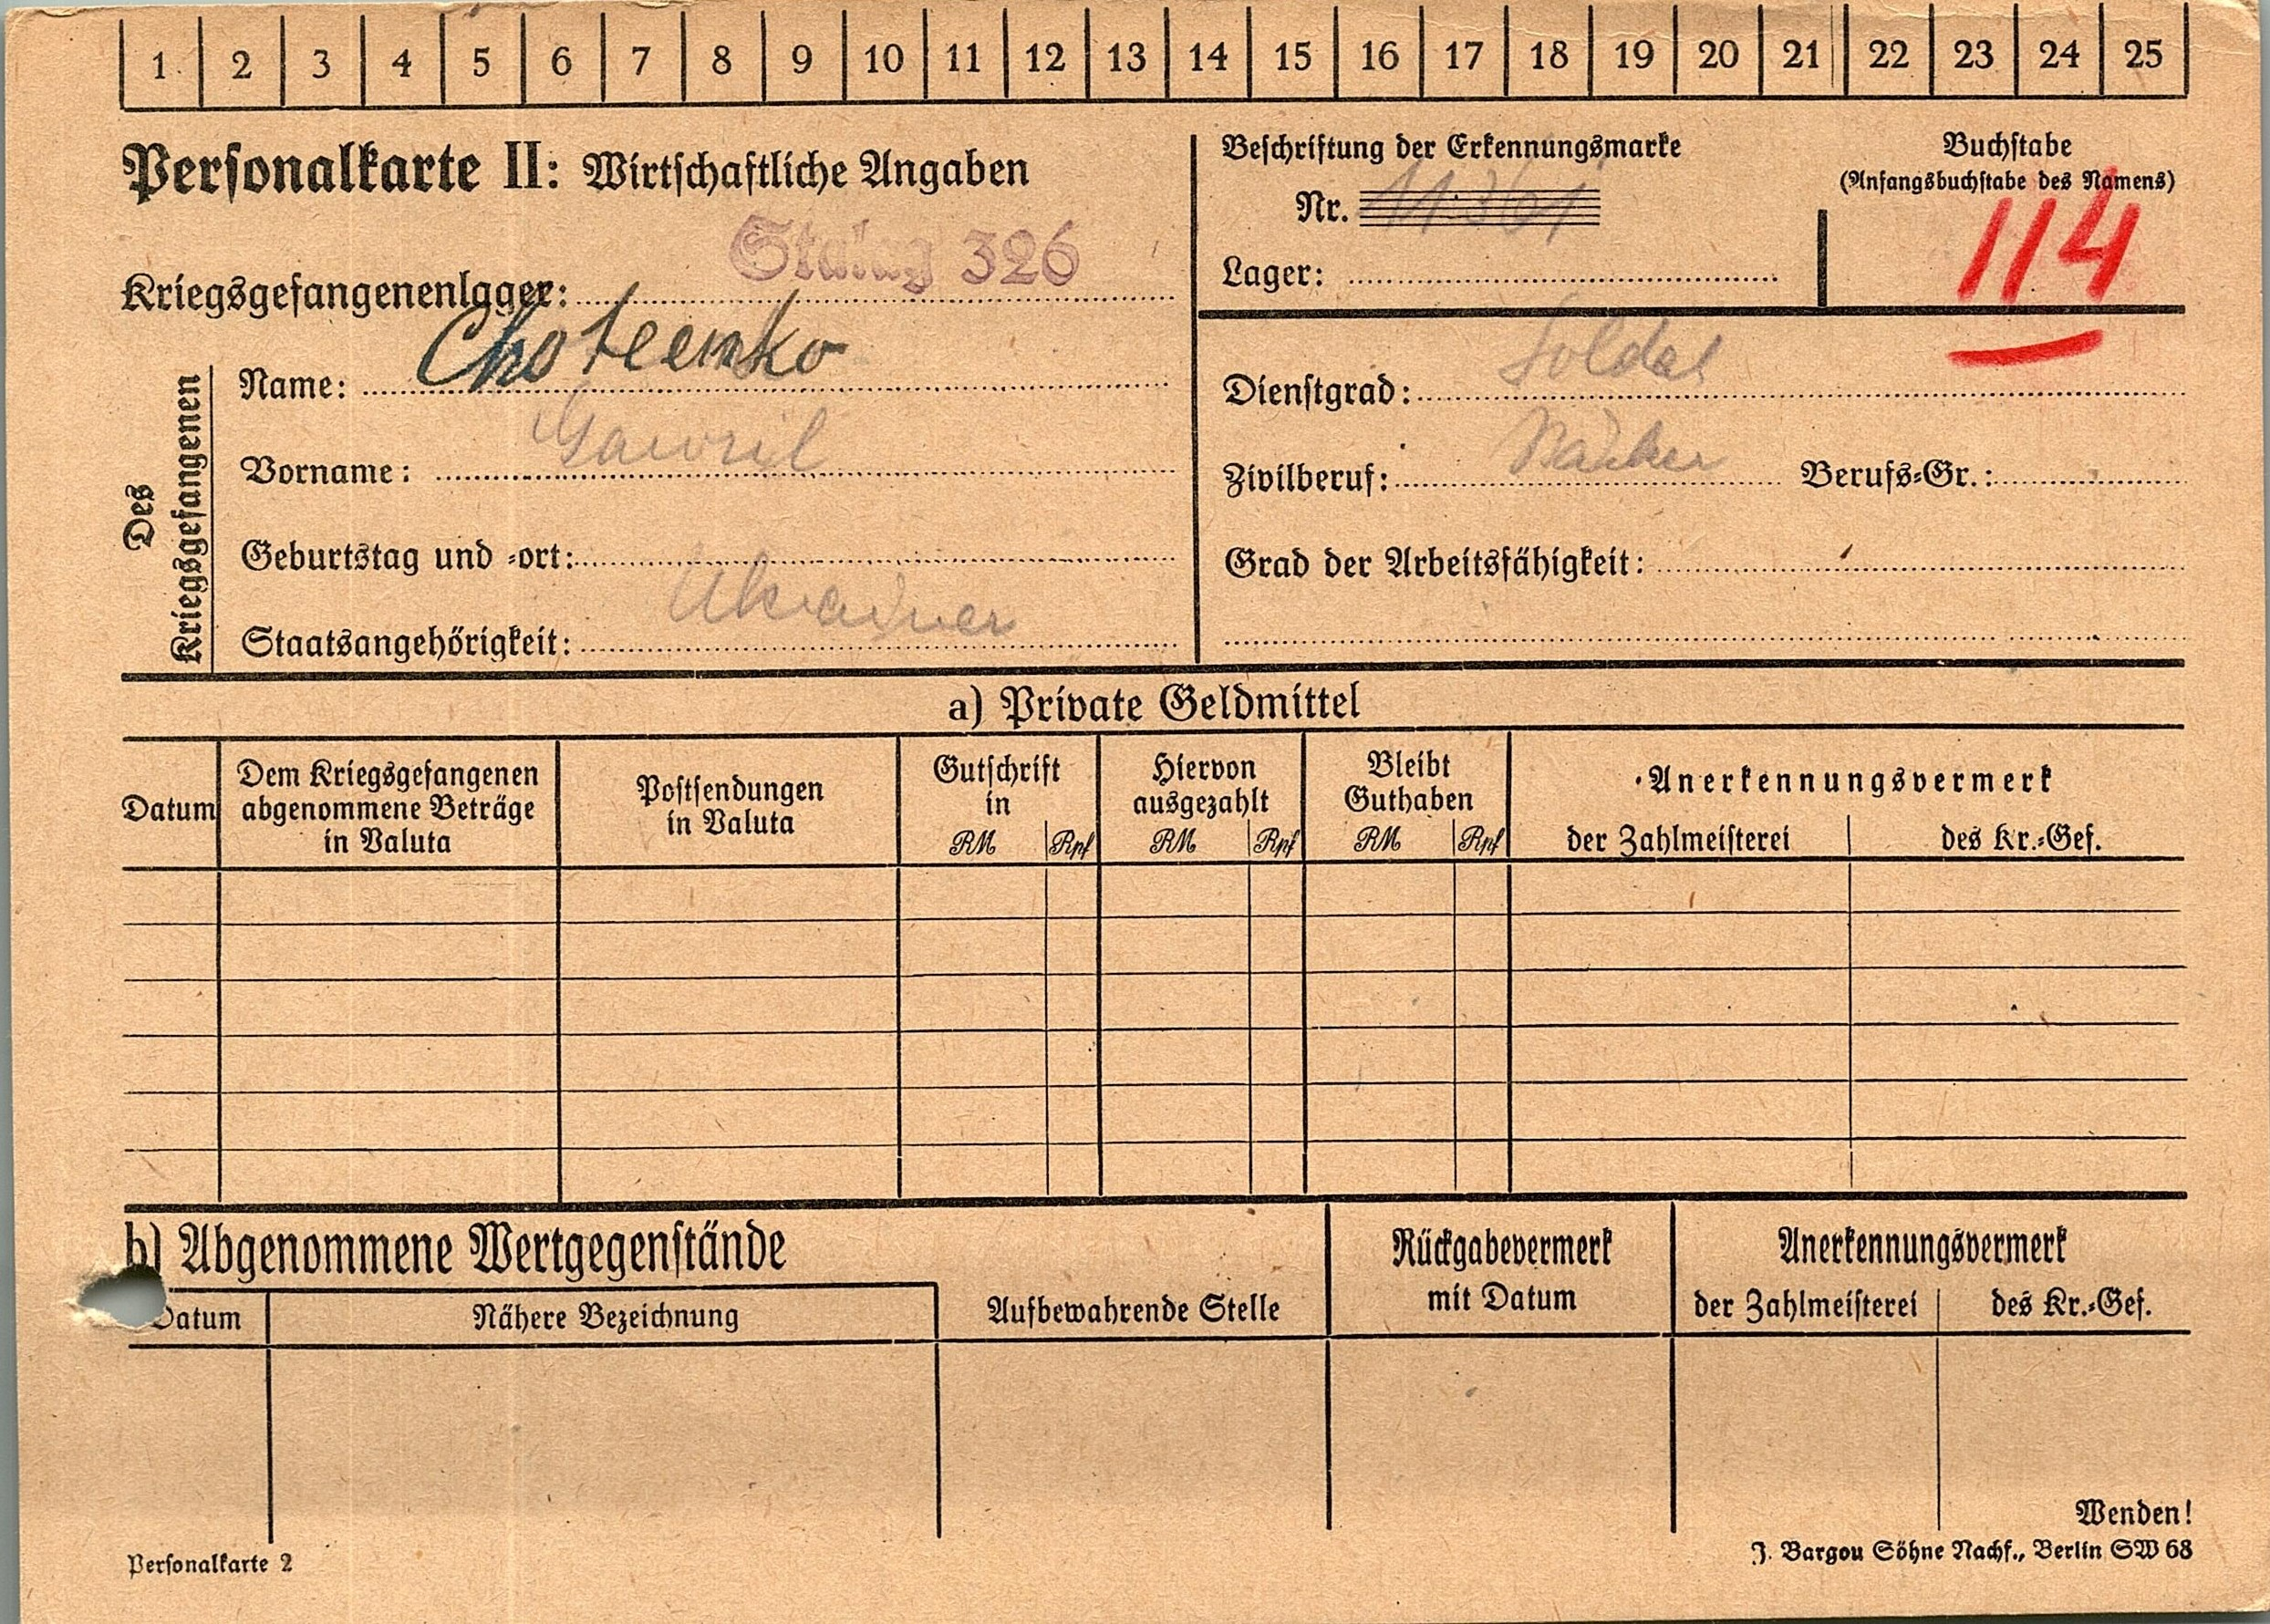 1 2 3 4 5 6 7 8 9 10 11 12 13 14 15 16 17 18 19 20 21 22 23 24 25
Personalkarte II: Wirtschaftliche Angaben
Stalag 326
Kriegsgefangenenlager:
Des Kriegsgefangenen
Name: Choteenko
Vorname: Gawril
Geburtstag und -ort:
Staatsangehörigkeit: Ukrainer
Beschriftung der Erkennungsmarke
Nr.
Lager:
Buchstabe
(Anfangsbuchstabe des Namens)
114
Dienstgrad: Soldat
Zivilberuf: Bäcker Berufs-Gr.:
Grad der Arbeitsfähigkeit:
a) Private Geldmittel
Datum
Dem Kriegsgefangenen
abgenommene Beträge
in Valuta
Postsendungen
in Valuta
Gutschrift
in
RM Rpf
Hiervon
ausgezahlt
RM Rpf
Bleibt
Guthaben
RM Rpf
Anerkennungsvermerk
der Zahlmeisterei des Kr.-Gef.
b) Abgenommene Wertgegenstände
Datum Nähere Bezeichnung
Aufbewahrende Stelle
Rückgabevermerk
mit Datum
Anerkennungsvermerk
der Zahlmeisterei des Kr.-Gef.
Wenden!
Personalkarte 2
J. Bargou Söhne Nachf., Berlin SW 68